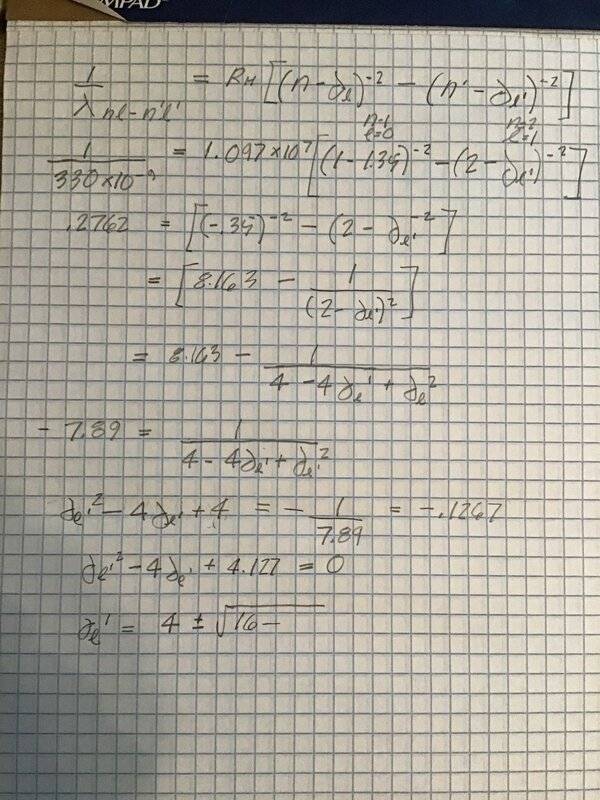 MPAD
1/λ nl-n'l' = RH [(n-∂l)^-2 - (n'-∂l')^-2]
n=1 n=2
l=0 l=1
1/330×10^-9 = 1.097×10^7 [(1-1.35)^-2 - (2-∂l')^-2]
.2762 = [(-.35)^-2 - (2-∂l'^-2]
= [8.163 - 1/(2-∂l')^2]
= 8.163 - 1/4-4∂l'+∂l^2
-7.89 = 1/4-4∂l'+∂l'^2
∂l'^2-4∂l'+4 = -1/7.89 = -.1267
∂l'^2-4∂l'+4.127 = 0
∂l' = 4 ± √16-